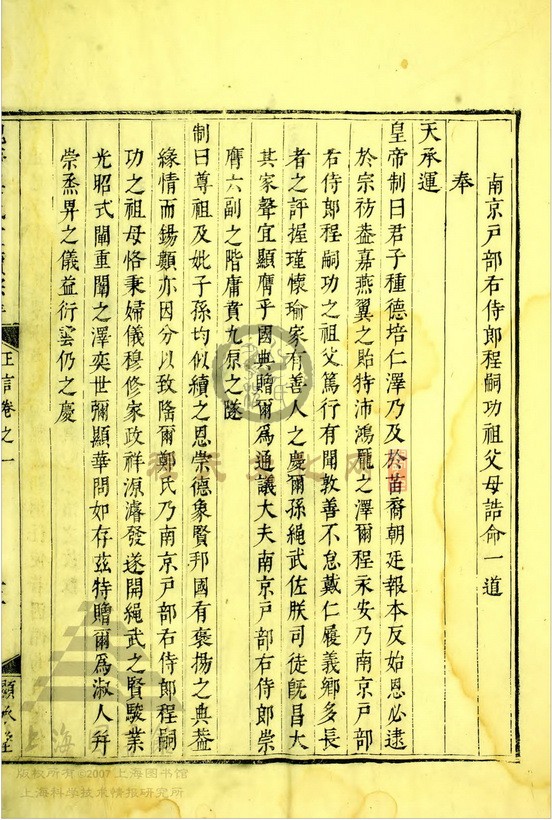 南京戸部右侍郎程嗣功祖父母誥命一道
奉
天承運
皇帝制曰君子種德培仁澤乃及於苗裔朝廷報本反始恩必逮
於宗祊葢嘉燕翼之貽特沛鴻厖之澤爾程永安乃南京戸部
右侍郎程嗣功之祖父篤行有聞敦善不怠戴仁履義鄉多長
者之評握瑾懷瑜家有善人之慶爾孫繩武佐朕司徒旣昌大
其家聲宜顯膺乎國典贈爾爲通議大夫南京戸部右侍郎崇
膺六副之階庸賁九原之隧
制曰尊祖及妣子孫均似續之恩崇德象賢邦國有褒揚之典葢
緣情而錫類亦因分以致隆爾鄭氏乃南京戸部右侍郎程嗣
功之祖母恪秉婦儀穆修家政祥源濬發遂開繩武之賢駿業
光昭式闡重闈之澤奕世彌顯華問如存兹特贈爾爲淑人幷
崇烝畀之儀益衍雲仍之慶
王言卷之一
版权所有©2007上海图书馆
上海科学技术情报研究所